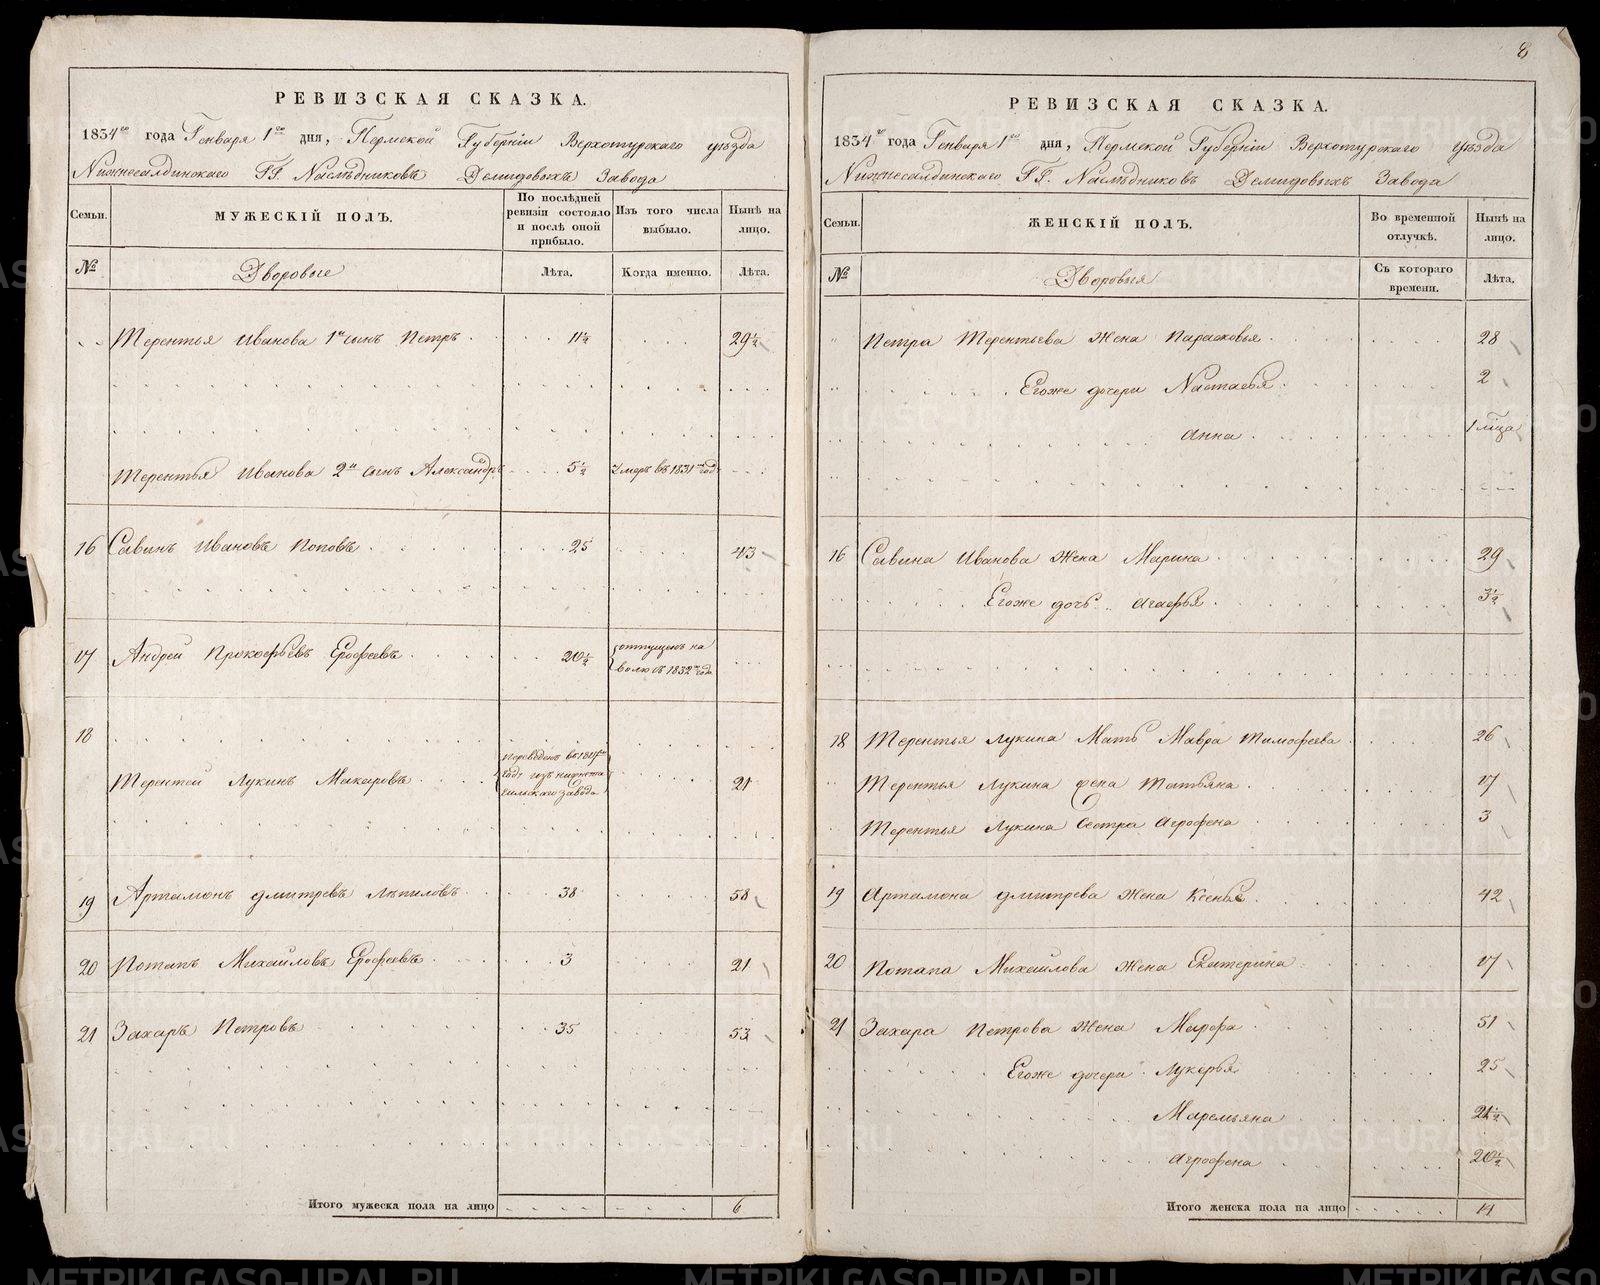 8
РЕВИЗСКАЯ СКАЗКА.
1834го года Генваря 1го дня, Пермской Губерніи Верхотурскаго уѣзда
Нижнесалдинскаго ГГ. Наслѣдниковъ Демидовыхъ Завода
Семьи.
МУЖЕСКІЙ ПОЛЪ.
По послѣдней ревизіи состояло и послѣ оной прибыло.
Изъ того числа выбыло.
Нынѣ на лицо.
№
Дворовые
Лѣта.
Когда именно.
Лѣта.
Терентья Иванова 1й сынъ Петръ 11½ 29½
Терентья Иванова 2й сынъ Александръ 5½ Умеръ въ 1831мъ годѣ
16 Савинъ Ивановъ Поповъ 25 43
17 Андрей Прокофьевъ Ерофеевъ 20½ отпущенъ на волю въ 1832мъ года
18
Терентей Лукинъ Макаровъ Переведенъ въ годѣ изъ завода 21
19 Артамонъ Дмитревъ Лѣпиловъ 38 58
20 Потапъ Михайловъ Ерофеевъ 3 21
21 Захаръ Петровъ 35 53
Итого мужеска пола на лицо 6
РЕВИЗСКАЯ СКАЗКА.
1834го года Генваря 1го дня, Пермской Губерніи Верхотурскаго уѣзда
Нижнесалдинскаго ГГ. Наслѣдниковъ Демидовыхъ Завода
Семьи.
ЖЕНСКІЙ ПОЛЪ.
Во временной отлучкѣ.
Нынѣ на лицо.
№
Дворовыя
Съ котораго времени.
Лѣта.
Петра Терентьева жена Парасковья 28
Егоже дочери Настасья 2
Анна 1 мѣсца
16 Савина Иванова жена Марина 29
Егоже дочь Агафья 3½
18 Терентья Лукина Мать Мавра Тимофеева 26
Терентья Лукина жена Татьяна 17
Терентья Лукина Сестра Агрофена 3
19 Артамона Дмитрева жена Ксенья 42
20 Потапа Михайлова жена Екатерина 17
21 Захара Петрова жена Марфа 51
Егоже дочери Лукерья 25
Маремьяна 21½
Агрофена 20½
Итого женска пола на лицо 14
METRIKI.GASO-URAL.RU